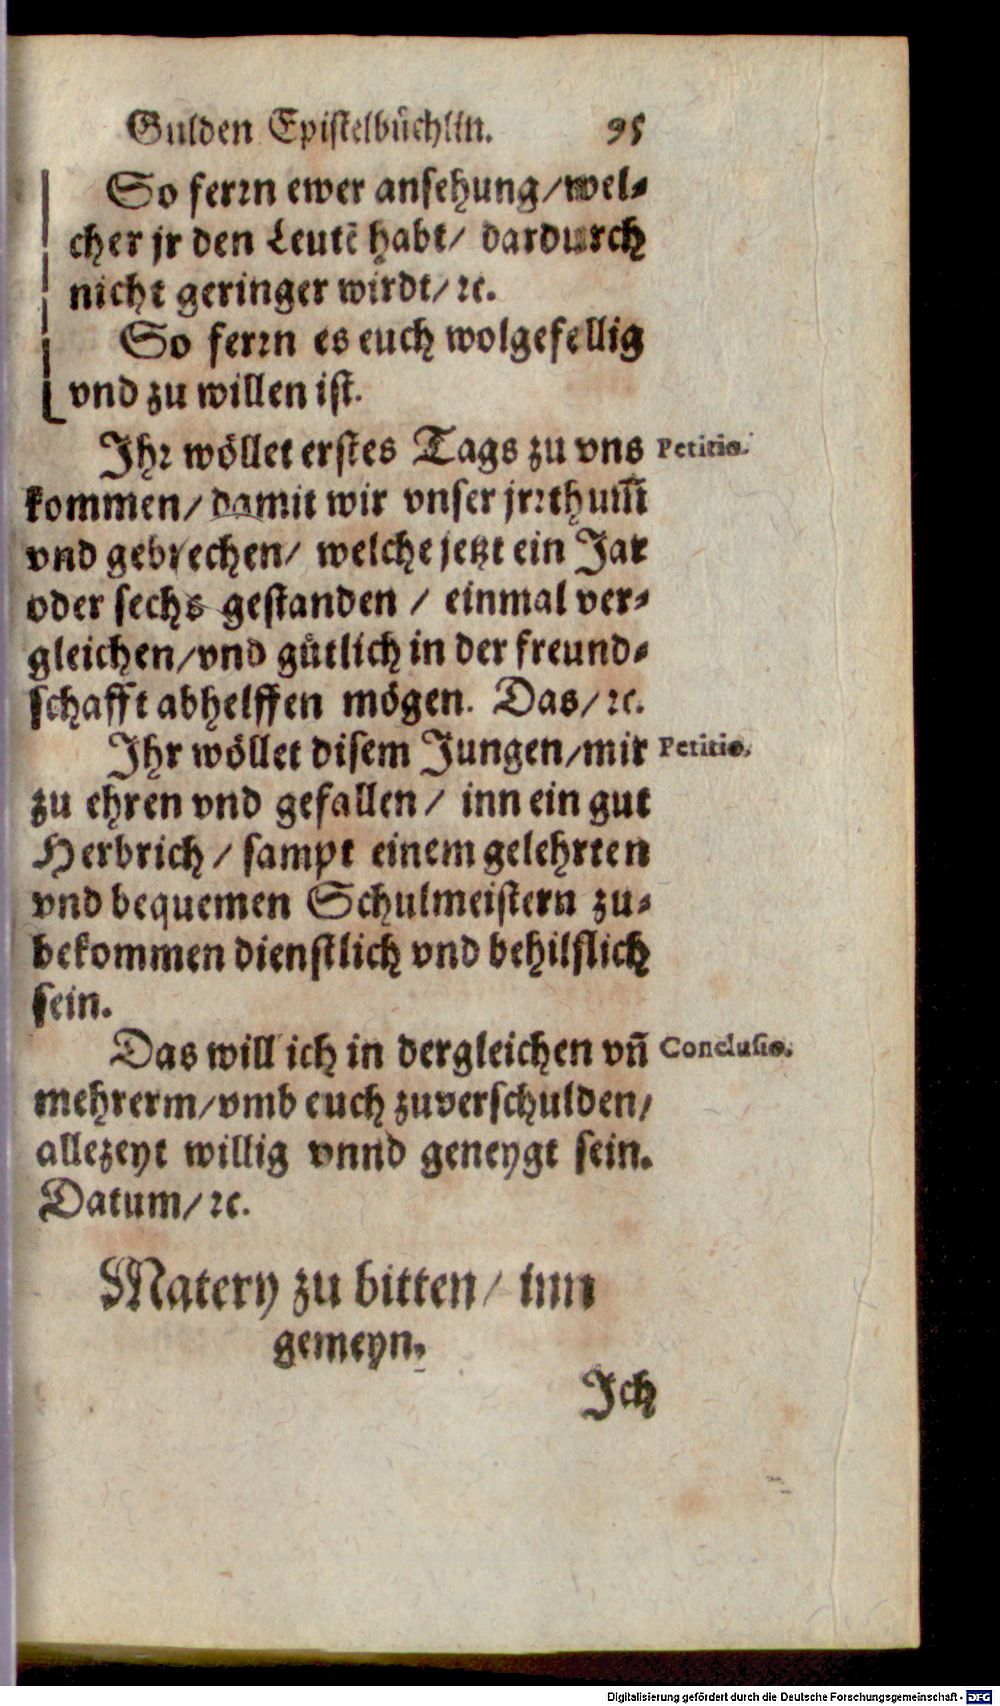 Gulden Epistelbüchlin. 95
So ferrn ewer ansehung/wel-
cher jr den Leutẽ habt/ dardurch
nicht geringer wirdt/ꝛc.
So ferrn es euch wolgefellig
vnd zu willen ist.
Ihr wöllet erstes Tags zu vns Petitio.
kommen/damit wir vnser jrrthum̃
vnd gebrechen/ welche jetzt ein Jar
oder sechs gestanden / einmal ver-
gleichen/vnd gütlich in der freund-
schafft abhelffen mögen. Das/ꝛc.
Ihr wöllet disem Jungen/mir Petitio.
zu ehren vnd gefallen/ inn ein gut
Herbrich/ sampt einem gelehrten
vnd bequemen Schulmeistern zu-
bekommen dienstlich vnd behilflich
sein.
Das will ich in dergleichen vñ Conclusio.
mehrerm/vmb euch zuverschulden/
allezeyt willig vnnd geneygt sein.
Datum/ꝛc.
Matery zu bitten/ inn
gemeyn.
Ich
Digitalisierung gefördert durch die Deutsche Forschungsgemeinschaft - DFG